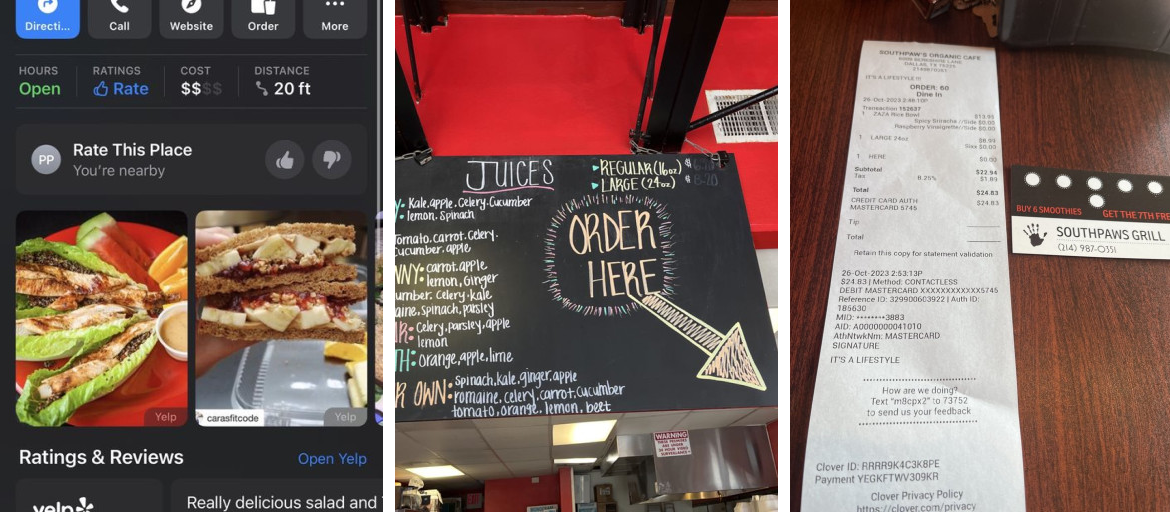 Directi...
Call
Website
Order
More
HOURS
RATINGS
COST
DISTANCE
Open
Rate
$$$$
20 ft
PP
Rate This Place
You're nearby
Yelp
carasfitcode
Yelp
Ratings & Reviews
Open Yelp
yelp
Really delicious salad and
JUICES
REGULAR (16oz) $
LARGE (24oz) $
Kale.apple.Celery.Cucumber
lemon.Spinach
Tomato.carrot.Celery.
Cucumber.apple
NNY: carrot.apple
lemon.Ginger
umber.Celery.kale
aine.Spinach.parsley
R: Celery.parsley.apple
lemon
TH: Orange.apple.lime
R OWN: spinach.kale.ginger.apple
romaine.celery.carrot.cucumber
tomato.orange.lemon.beet
ORDER
HERE
WARNING
SOUTHPAW'S ORGANIC CAFE
DALLAS, TX 75225
2149870351
IT'S A LIFESTYLE !!!
ORDER: 60
Dine In
26-Oct-2023 2:48:10P
Transaction 152637
1 ZAZA Rice Bowl $13.95
Spicy Sriracha //Side $0.00
Raspberry Vinaigrette//Side $0.00
1 LARGE 24oz. $8.99
Stixx $0.00
1 HERE $0.00
Subtotal $22.94
Tax 8.25% $1.89
Total $24.83
CREDIT CARD AUTH $24.83
MASTERCARD 5745
Tip:
Total
Retain this copy for statement validation
26-Oct-2023 2:53:13P
$24.83 | Method: CONTACTLESS
DEBIT MASTERCARD XXXXXXXXXXXX5745
Reference ID: 329900603922 | Auth ID:
185630
MID: ********3883
AID: A0000000041010
AthNtwkNm: MASTERCARD
SIGNATURE
IT'S A LIFESTYLE
How are we doing?
Text "m8cpx2" to 73752
to send us your feedback
Clover ID: RRRR9K4C3K8PE
Payment YEGKFTWV309KR
Clover Privacy Policy
https://clover.com/privacy
BUY 6 SMOOTHIES
GET THE 7TH FRE
SOUTHPAWS GRILL
(214) 987-0351